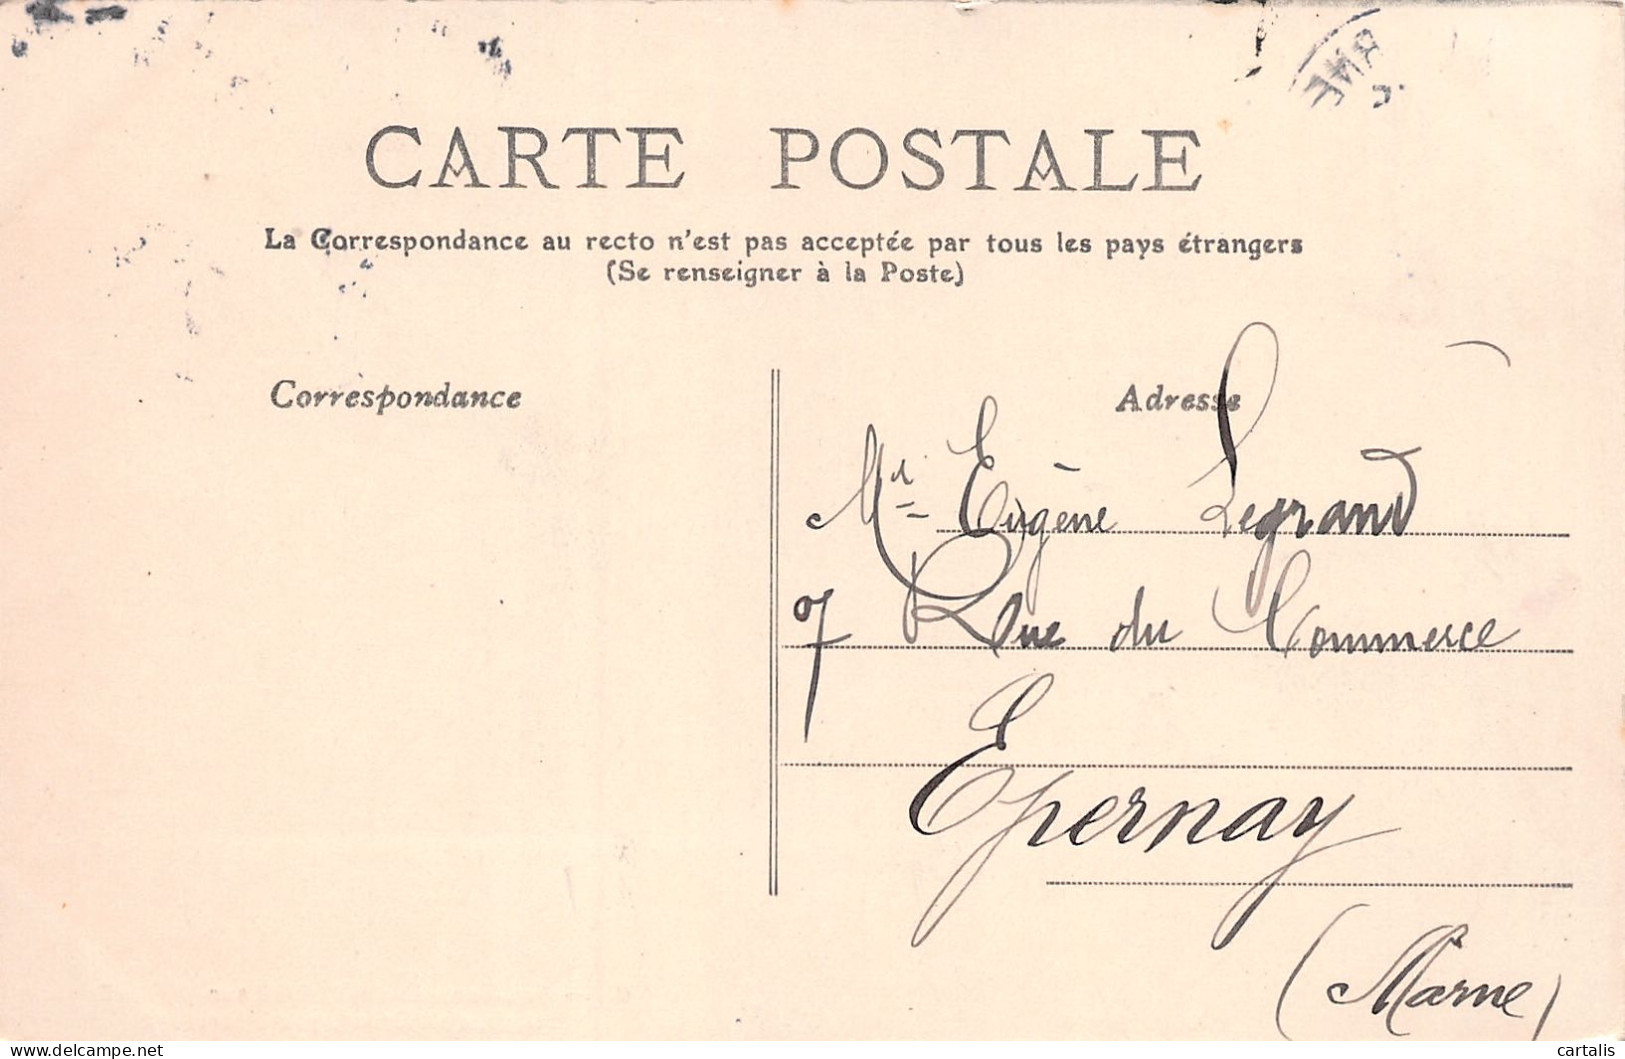 CARTE POSTALE
La Correspondance au recto n'est pas acceptée par tous les pays étrangers
(Se renseigner à la Poste)
Correspondance
Adresse
Mr Eugène Legrand
7 Rue du Commerce
Epernay
(Marne)
cartalis